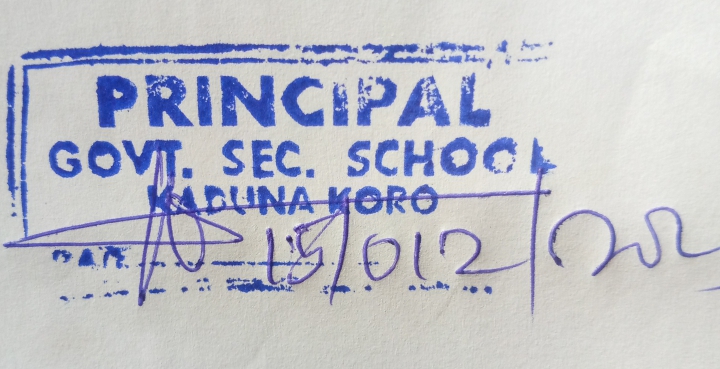 PRINCIPAL
GOVT. SEC. SCHOOL
KADUNA KORO
15/012/202